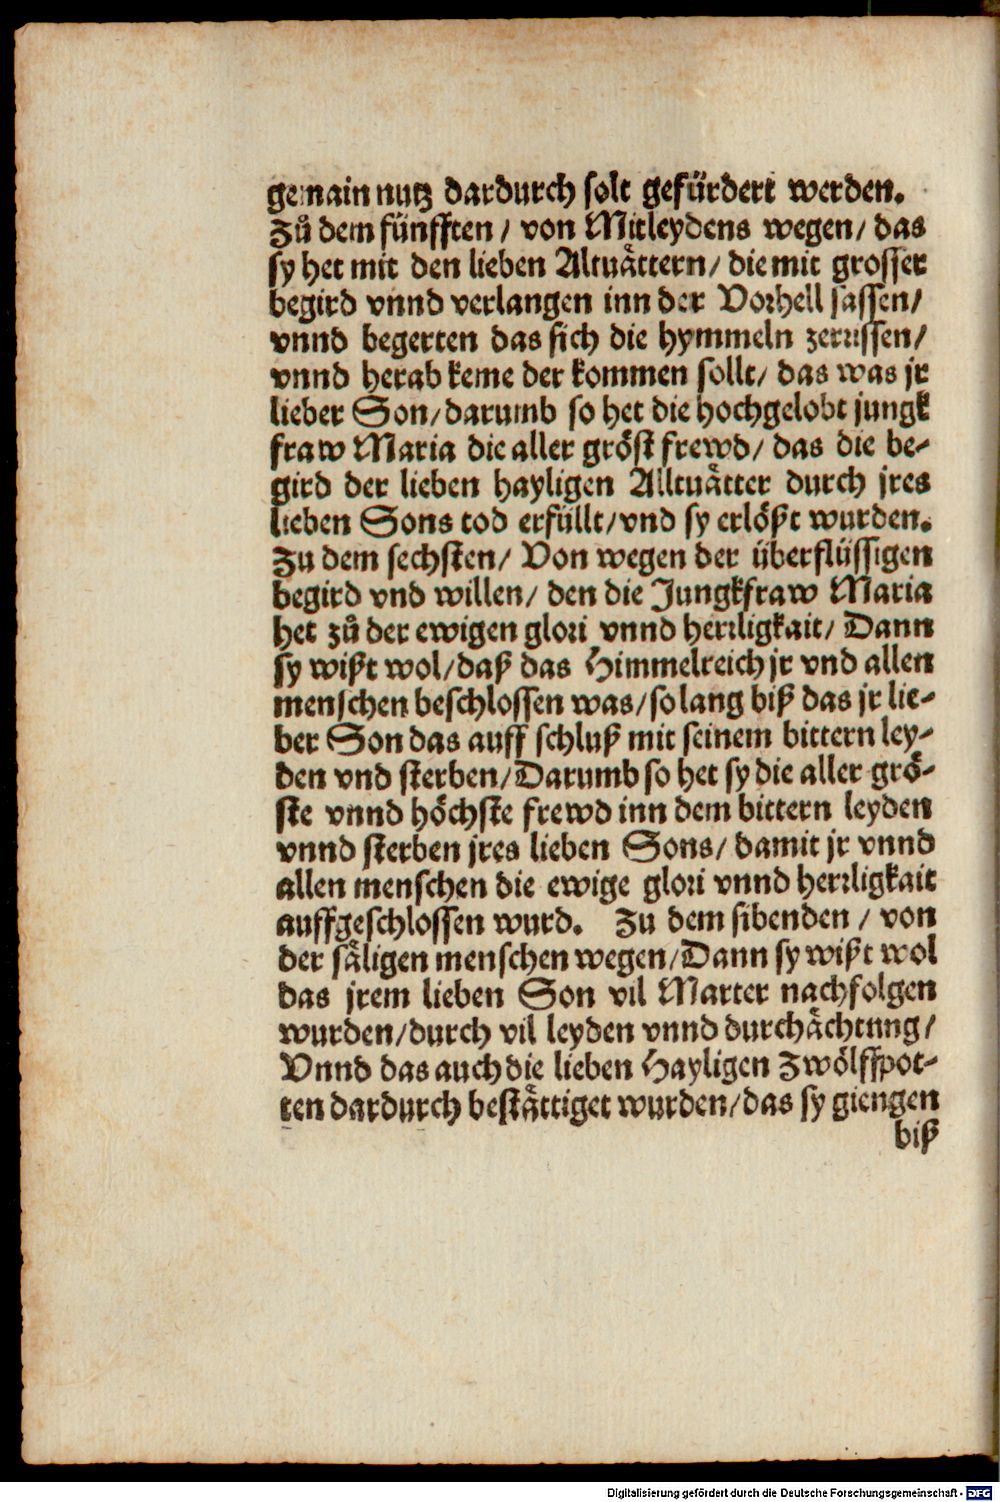 gemain nutz dardurch solt gefürdert werden.
Zů dem fünfften / von Mitleydens wegen / das
sy het mit den lieben Altuåttern / die mit grosser
begird vnnd verlangen inn der Vorhell sassen /
vnnd begerten das sich die hymmeln zerrissen /
vnnd herab keme der kommen sollt / das was jr
lieber Son / darumb so het die hochgelobt jungk
fraw Maria die aller gröst frewd / das die be-
gird der lieben hayligen Alltuåtter durch jres
lieben Sons tod erfüllt / vnd sy erlößt wurden.
Zu dem sechsten / Von wegen der überflüssigen
begird vnd willen / den die Jungkfraw Maria
het zů der ewigen glori vnnd herrligkait / Dann
sy wißt wol / daß das Himmelreich jr vnd allen
menschen beschlossen was / so lang biß das jr lie-
ber Son das auff schluß mit seinem bittern ley-
den vnd sterben / Darumb so het sy die aller grö-
ste vnnd höchste frewd inn dem bittern leyden
vnnd sterben jres lieben Sons / damit jr vnnd
allen menschen die ewige glori vnnd herrligkait
auffgeschlossen wurd. Zu dem sibenden / von
der såligen menschen wegen / Dann sy wißt wol
das jrem lieben Son vil Marter nachfolgen
wurden / durch vil leyden vnnd durchåchtung /
Vnnd das auch die lieben Hayligen Zwölffpot-
ten dardurch beståttiget wurden / das sy giengen
biß
Digitalisierung gefördert durch die Deutsche Forschungsgemeinschaft - DFG